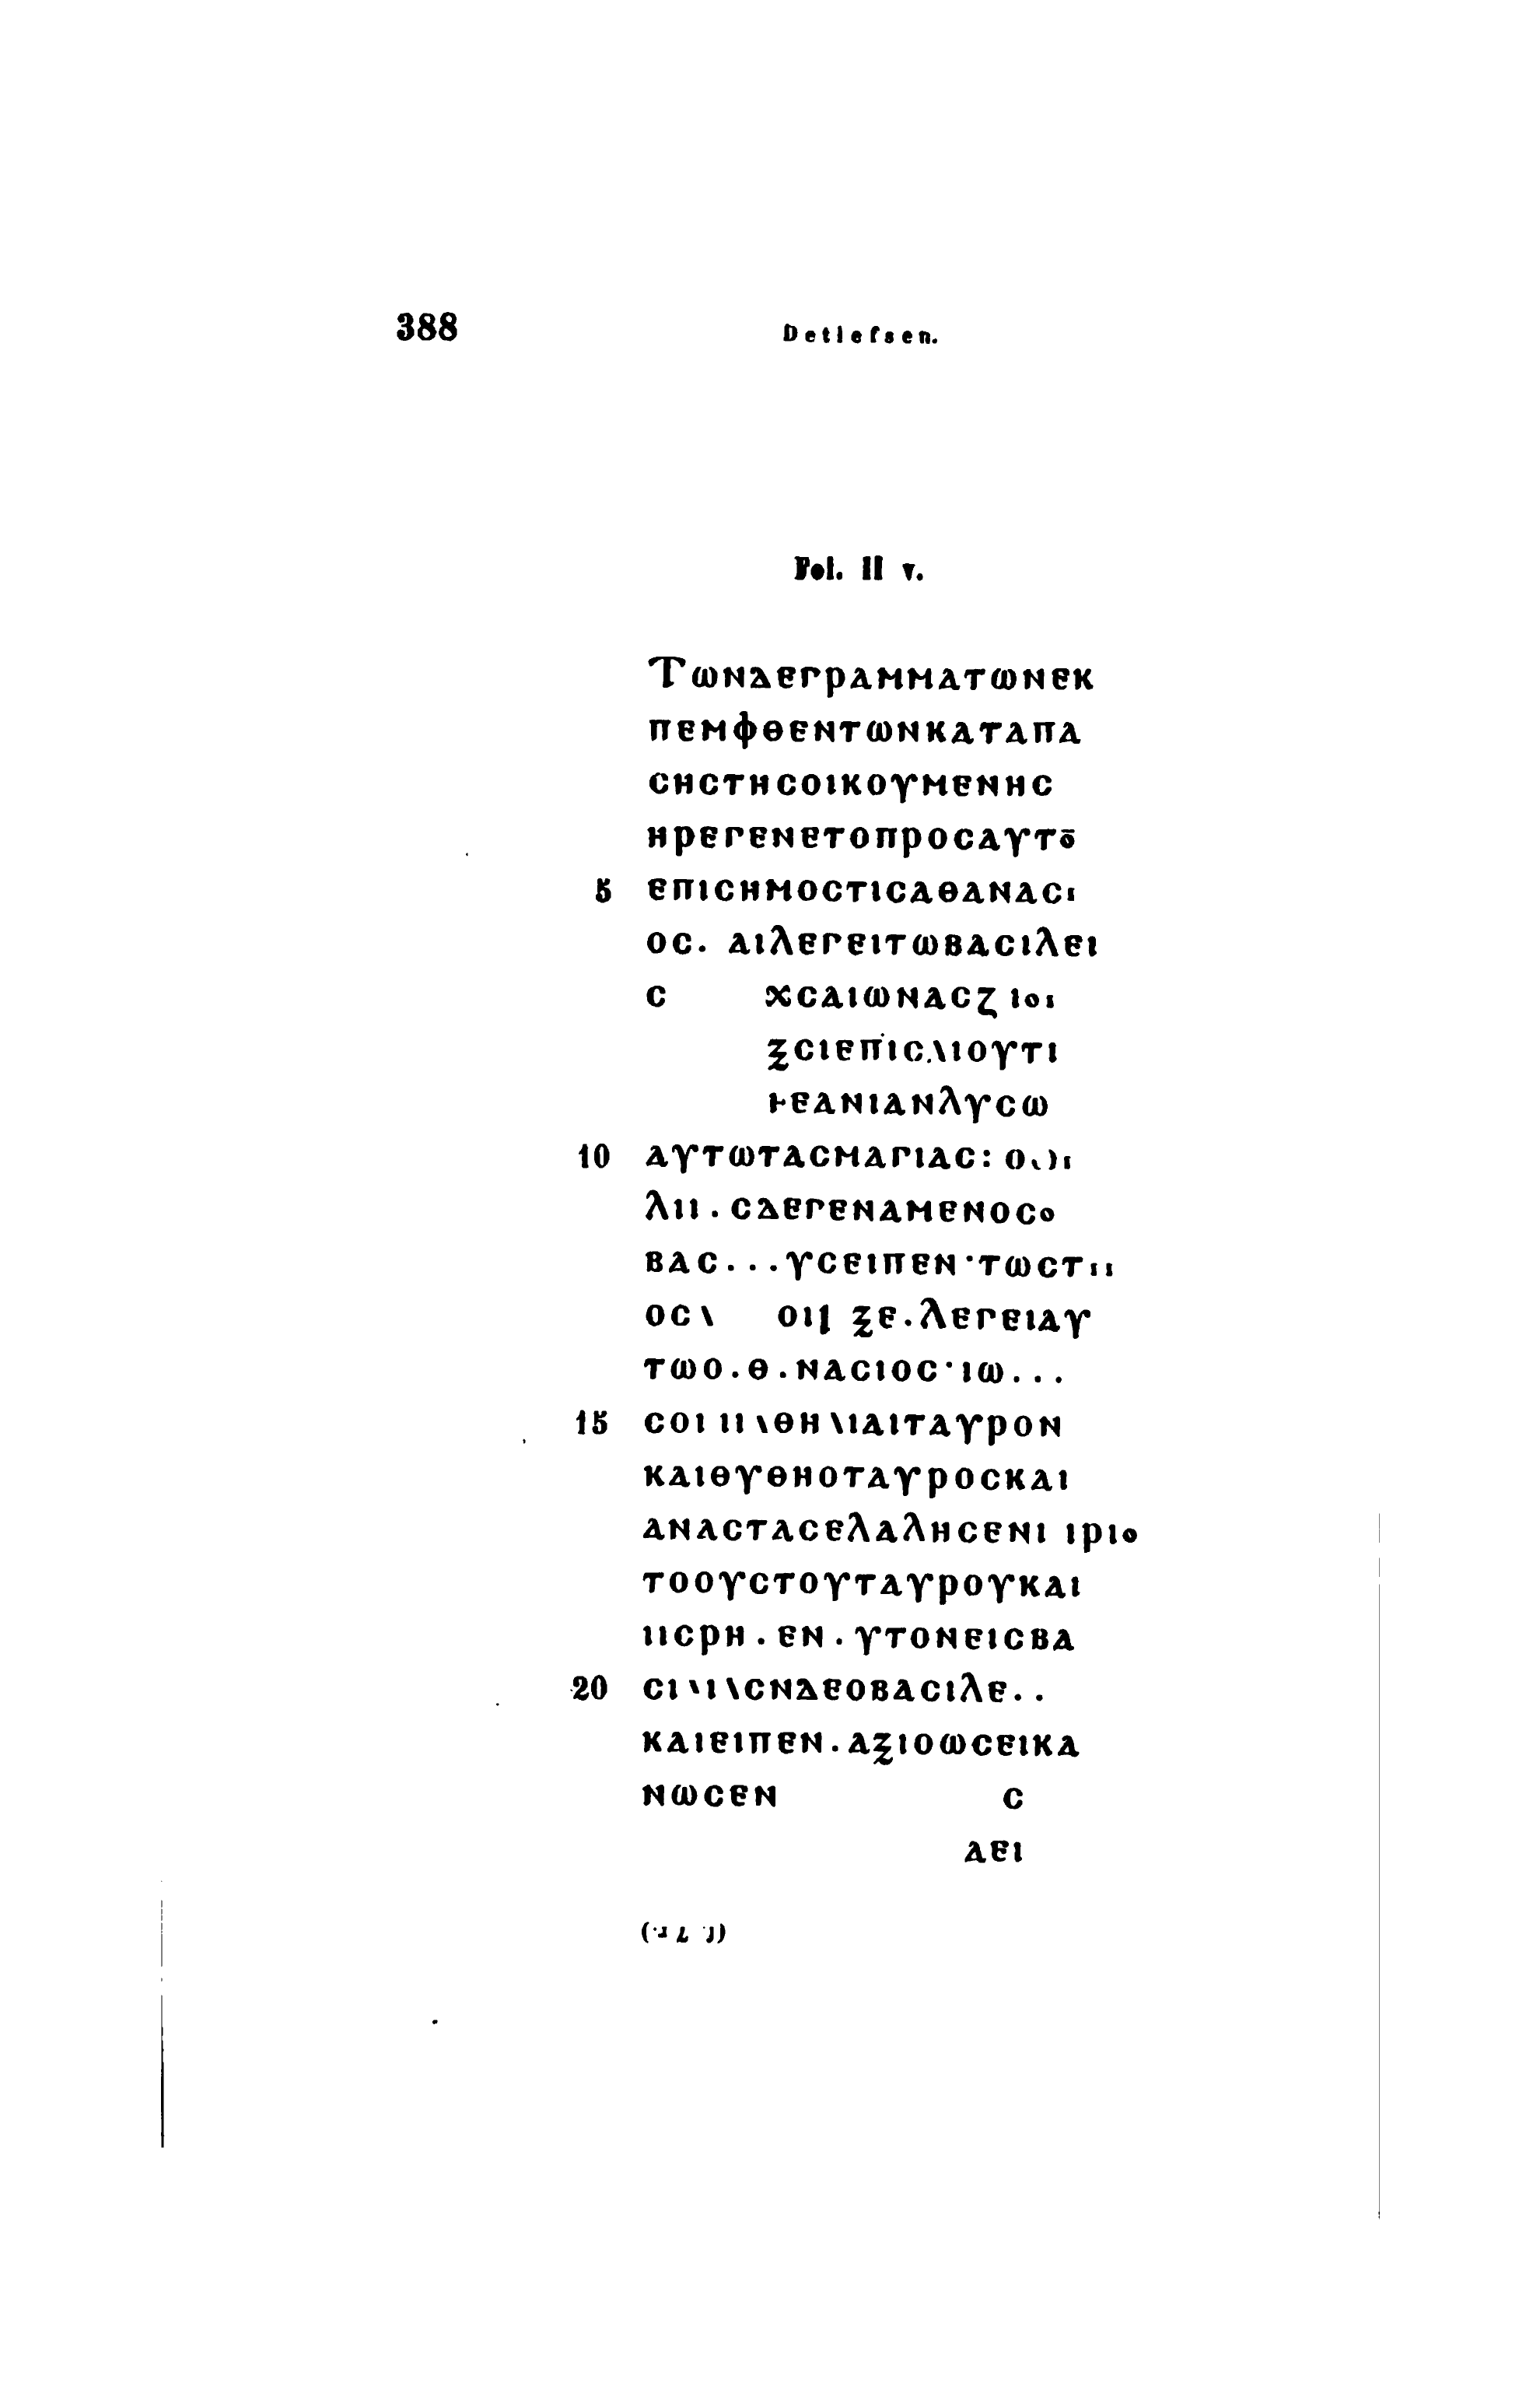 388 Detlefsen.
Fol. II v.
ΤωΝΔΕΓΡΑΜΜΑΤωΝΕΚ
ΠΕΜΦΘΕΝΤωΝΚΑΤΑΠΑ
CΗCΤΗCΟΙΚΟΥΜΕΝΗC
ΗΡΕΓΕΝΕΤΟΠΡΟCΑΥΤΟ̄
5 ΕΠΙCΗΜΟCΤΙCΑΘΑΝΑCΙ
ΟC. ΑΙΛΕΓΕΙΤωΒΑCΙΛΕΙ
C ΧCΑΙωΝΑCΖ ΙΟΙ
ΞCΙΕΠΙC.\ΙΟΥΤΙ
ΕΑΝΙΑΝΛΥCω
10 ΑΥΤωΤΑCΜΑΓΙΑC:
ΛΙΙ . CΔΕΓΕΝΑΜΕΝΟCΟ
ΒΑC...ΥCΕΙΠΕΝ·ΤωCΤΙΙ
ΟC\ ΟΙ ΞΕ.ΛΕΓΕΙΑΥ
ΤωΟ.Θ.ΝΑCΙΟC·Ιω...
15 CΟΙ ΙΙ\ΘΗ\ΙΑΙΤΑΥΡΟΝ
ΚΑΙΘΥΘΗΟΤΑΥΡΟCΚΑΙ
ΑΝΑCΤΑCΕΛΑΛΗCΕΝΙ ΙΡΙΟ
ΤΟΟΥCΤΟΥΤΑΥΡΟΥΚΑΙ
ΙΙCΡΗ . ΕΝ . ΥΤΟΝΕΙCΒΑ
20 CΙ\Ι\CΝΔΕΟΒΑCΙΛΕ..
ΚΑΙΕΙΠΕΝ.ΑΞΙΟωCΕΙΚΑ
ΝωCΕΝ C
ΑΕΙ